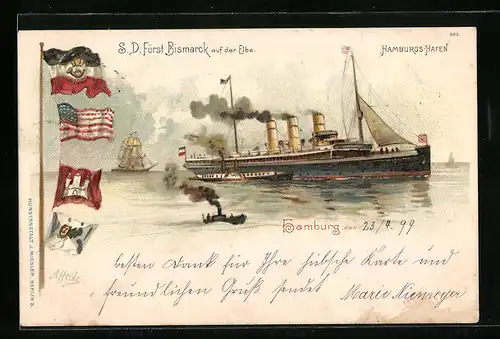 S. D. Fürst Bismarck auf der Elbe.
HAMBURGS-HAFEN
Hamburg, den 23/4. 99
besten Dank für Ihre hübsche Karte und
freundlichen Gruß sendet Marie Niemeyer
KUNSTANSTALT J. MIESLER, BERLIN S.